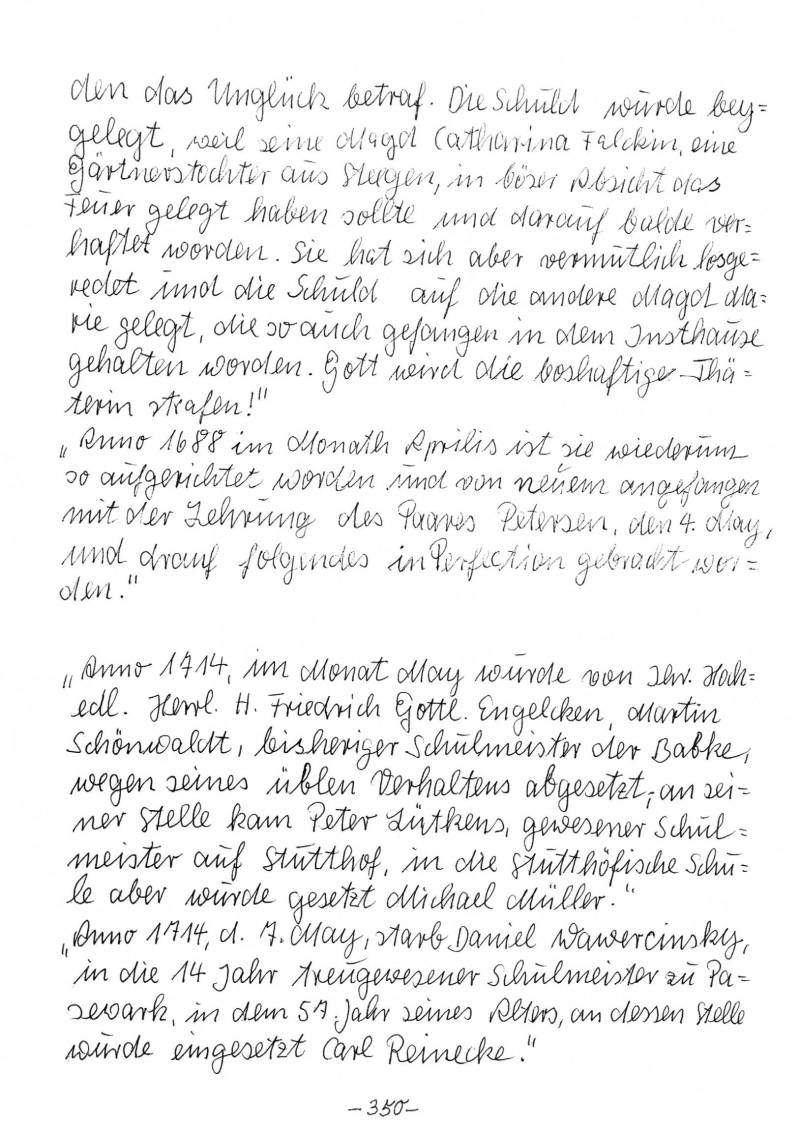 den das Unglück betraf. Die Schuld wurde bey=
gelegt, weil seine Magd Catharina Falckin, eine
Gärtnerstochter aus Stegen, in böser Absicht das
Feuer gelegt haben sollte und darauf balde ver=
haftet worden. Sie hat sich aber vermutlich losge=
redet und die Schuld auf die andere Magd Ma=
rie gelegt, die so auch gefangen in dem Insthause
gehalten worden. Gott wird die boshaftige Thä=
terin strafen!"
„Anno 1688 im Monath Aprilis ist sie wiederum
so aufgerichtet worden und von neuem angefangen
mit der Zehrung des Paares Petersen, den 4. May,
und drauf folgendes in Perfection gebracht wor=
den."
„Anno 1714, im Monat May wurde von Ihr. Hoch=
edl. Herrl. H. Friedrich Gottl. Engelcken, Martin
Schönwaldt, bisheriger Schulmeister der Babke,
wegen seines üblen Verhaltens abgesetzt; an sei=
ner Stelle kam Peter Lütkens, gewesener Schul=
meister auf Stutthof, in die Stutthöfische Schu=
le aber wurde gesetzt Michael Müller."
„Anno 1714, d. 7. May, starb Daniel Wawercinsky,
in die 14 Jahr treugewesener Schulmeister zu Pa=
sewark, in dem 57. Jahr seines Alters, an dessen Stelle
wurde eingesetzt Carl Reinecke."
-350-